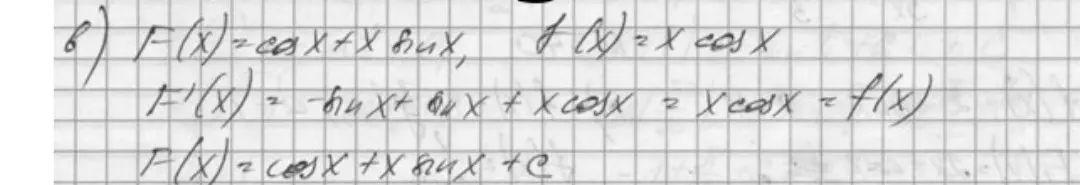 в) F(x) = cos x + x sin x, f(x) = x cos x
F'(x) = -sin x + sin x + x cos x = x cos x = f(x)
F(x) = cos x + x sin x + c